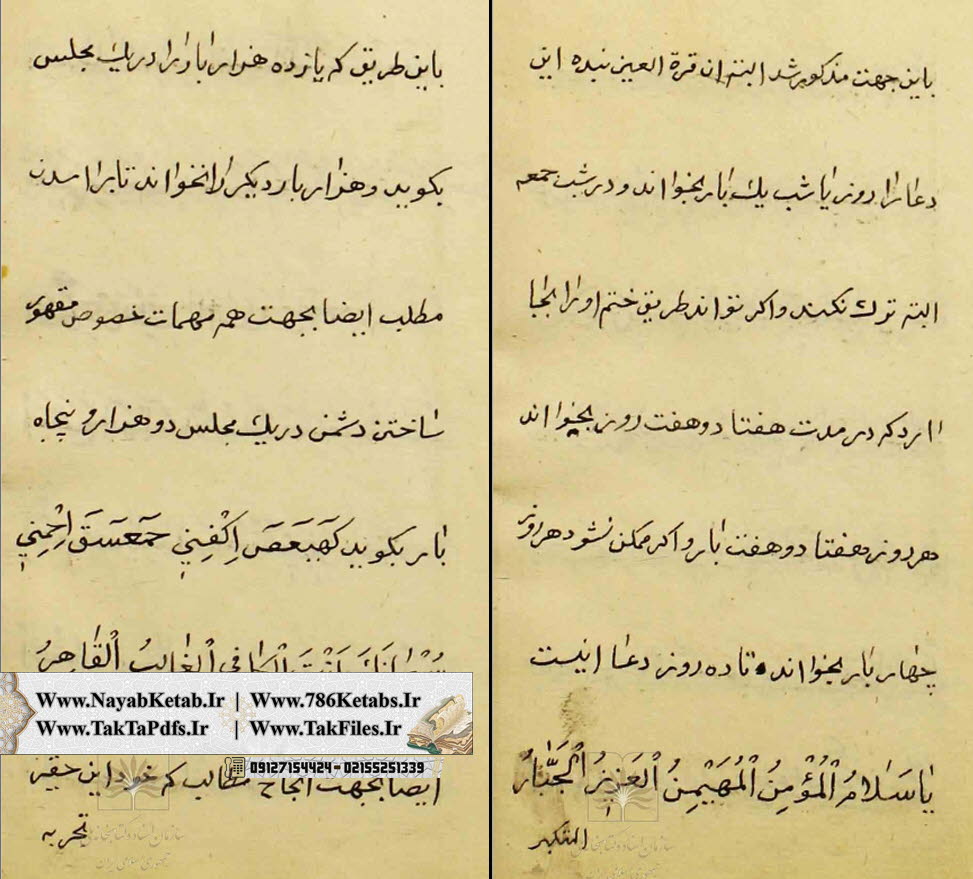 باین جهت مذکور شد البته ان قرة العین بنده این
دعا را روز یا شب یك بار بخواند و در شب جمعه
البته ترك نکند واکر تواند طریق ختم او را بجا
ارد که در مدت هفتاد و هفت روز بخواند
هر روز هفتاد و هفت بار و اکر ممکن نشود هر روز
چهار بار بخواند تا ده روز دعا اینست
یٰا سَلامُ الْمُؤْمِنُ الْمُهَیْمِنُ الْعَزِیزُ الْجَبّٰارُ
المتکبر
باین طریق که یازده هزار بار در یك مجلس
بکوید و هزار بار دیکر بخواند تا برامدن
مطلب ایضا بجهت همه مهمات خصوص مقهور
ساختن دشمن در یك مجلس دو هزار و پنجاه
بار بکوید کٓهٰیٰعٓصٓ اِکْفِنِي حٓمٓعٓسٓقٓ اِحْمِنِي
سُبْحٰانَكَ اَنْتَ الْکٰافِي الْغٰالِبُ الْقٰاهِرُ
Www.NayabKetab.Ir | Www.786Ketabs.Ir
Www.TakTaPdfs.Ir | Www.TakFiles.Ir
09127154424 - 02155251339
ایضا بجهت انجاح مطالب که خود این حقیر
تجربه